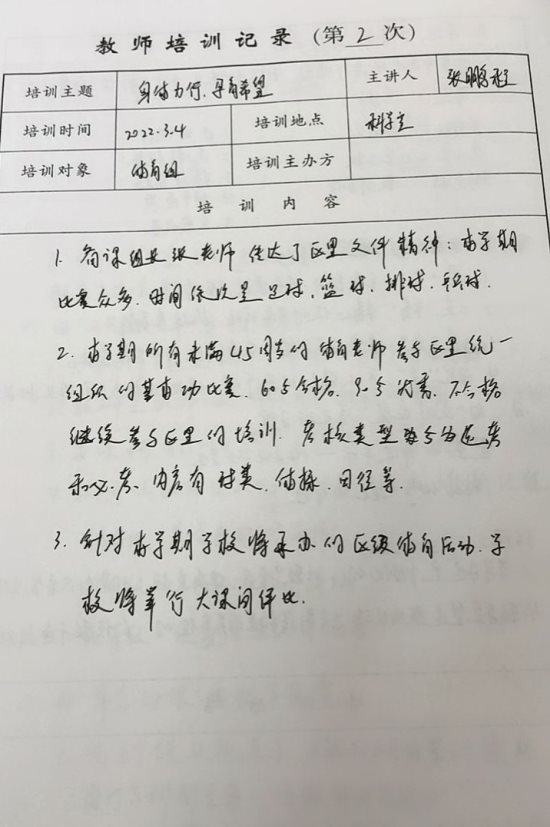 教师培训记录(第2次)
培训主题 身体力行、孕育希望 主讲人 张鹏程
培训时间 2022.3.4 培训地点 科学室
培训对象 体育组 培训主办方
培训内容
1. 备课组长张老师传达了区里文件精神：本学期
比赛众多.时间依次是足球、篮球、排球、乒乓球.
2. 本学期所有未满45周岁的体育老师参与区里统一
组织的基本功比赛.60分合格.90分优秀.不合格
继续参与区里的培训.考核类型分为选考
和必考.内容有球类.体操.田径等.
3. 针对本学期学校将承办的区级体育活动.学
校将举行大课间评比.